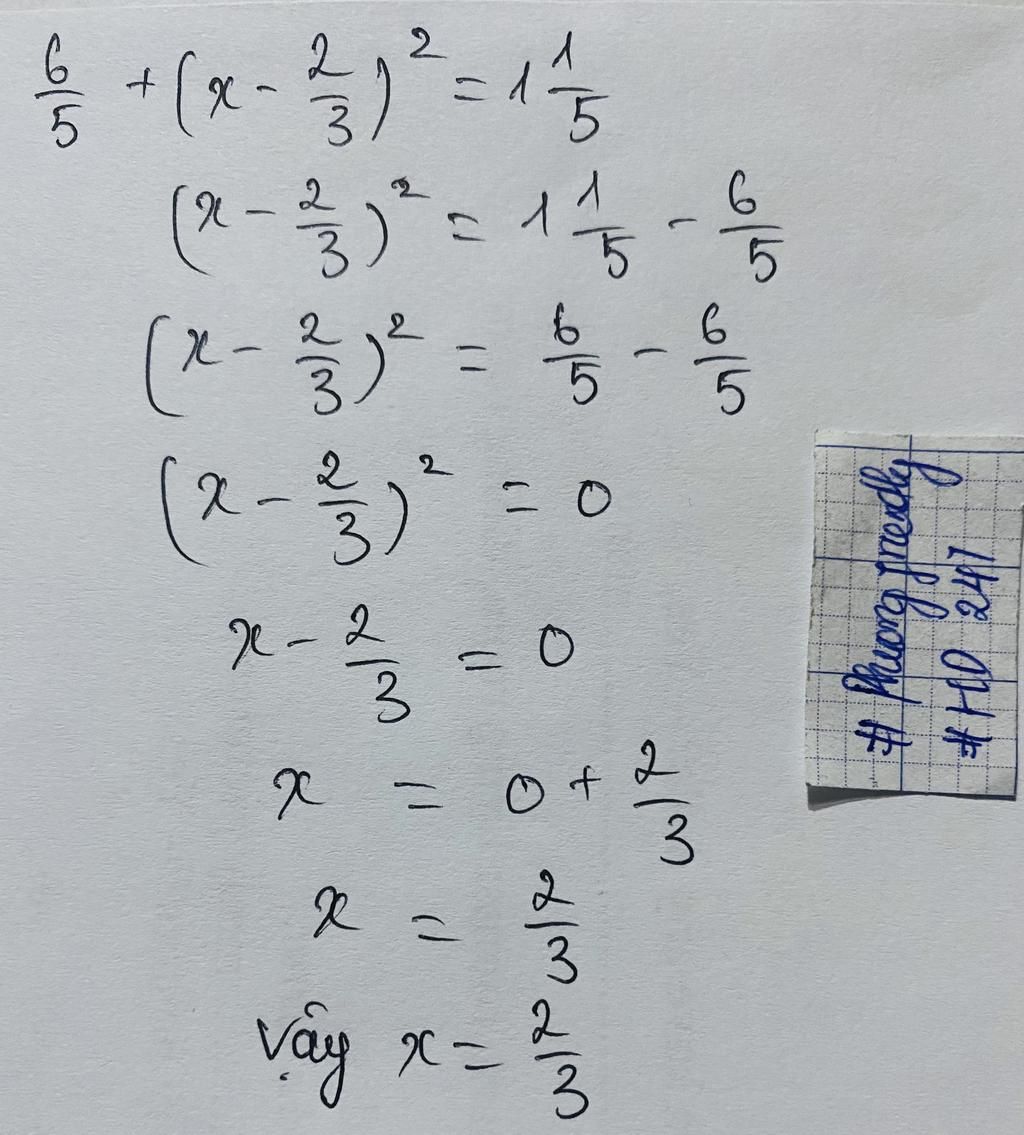 6/5 + (x - 2/3)² = 1 1/5
(x - 2/3)² = 1 1/5 - 6/5
(x - 2/3)² = 6/5 - 6/5
(x - 2/3)² = 0
x - 2/3 = 0
x = 0 + 2/3
x = 2/3
Vậy x = 2/3
# Phuong friendly
# HD 247